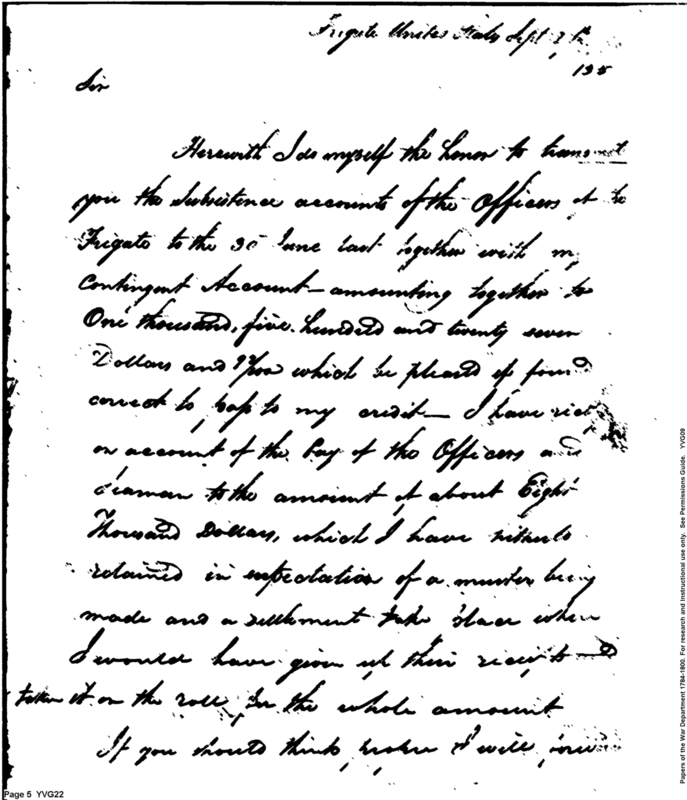 Frigate United States Sept
Sir
Herewith I do myself the honor to transmit
you the Subsistence accounts of the Officers of the
Frigate to the 30 June last together with my
Contingent Account — amounting together to
One thousand, five hundred and twenty seven
Dollars and which be pleased if found
correct to pass to my credit — I have
on account of the Pay of the Officers and
Seaman to the amount of about Eight
Thousand Dollars, which I have hitherto
retained in expectation of a muster being
made and a settlement take place when
I would have given up their receipts and
taken it on the roll for the whole amount
If you should think proper I will
Page 5 YVG22
Papers of the War Department 1784-1800. For research and instructional use only. See Permissions Guide. YVG09